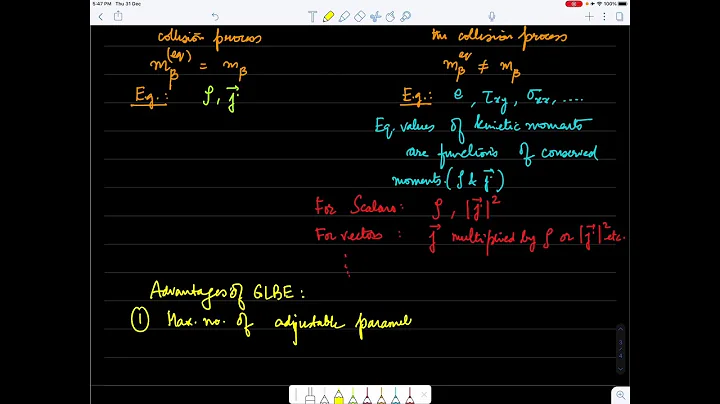 5:47 PM Thu 31 Dec
collision process
the collision process
m_β^(eq) = m_β
m_β^eq ≠ m_β
E.g.: ρ, j⃗
E.g.: e, τxy, σxx, ....
Eq. values of kinetic momemts
are functions of conserved
moments (ρ & j⃗)
For Scalars: ρ, |j⃗|²
For vectors: j⃗ multiplied by ρ or |j⃗|² etc.
⋮
Advantages of GLBE:
① Max. no. of adjustable paramet
3
4